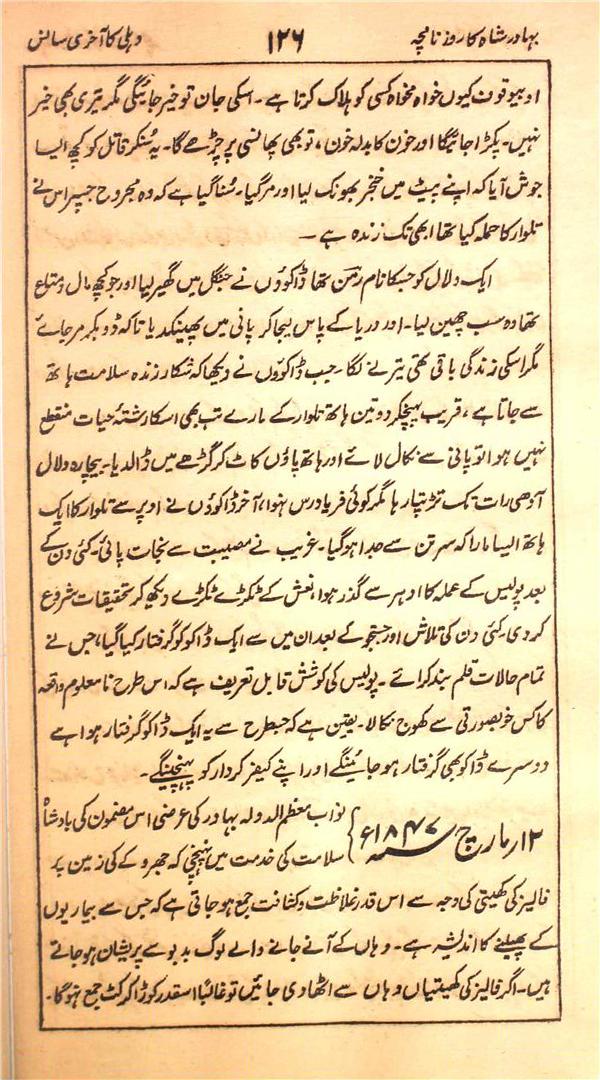 بہادر شاہ کا روزنامچہ ۱۲۶ دہلی کا آخری سانس
او بیوقوف کیوں خواہ مخواہ کسی کو ہلاک کرتا ہے۔ اسکی جان تو خیر جائیگی مگر تیری بھی خیر
نہیں۔ پکڑا جائیگا اور خون کا بدلہ خون، تو بھی پھانسی پر چڑھے گا۔ یہ سُنکر قاتل کو کچھ ایسا
جوش آیا کہ اپنے پیٹ میں خنجر بھونک لیا اور مر گیا۔ سُنا گیا ہے کہ وہ مجروح جسپر اس نے
تلوار کا حملہ کیا تھا ابھی تک زندہ ہے۔
ایک دلال کو جسکا نام رمضن تھا ڈاکوؤں نے جنگل میں گھیر لیا اور جو کچھ مال و متاع
تھا وہ سب چھین لیا۔ اور دریا کے پاس لیجا کر پانی میں پھینکدیا تاکہ ڈوبکر مر جائے
مگر اسکی زندگی باقی تھی تیرنے لگا۔ جب ڈاکوؤں نے دیکھا کہ شکار زندہ سلامت ہاتھ
سے جاتا ہے، قریب پہنچکر دو تین ہاتھ تلوار کے مارے تب بھی اسکا رشتۂ حیات منقطع
نہیں ہوا تو پانی سے نکال لائے اور ہاتھ پاؤں کاٹ کر گڑھے میں ڈالدیا۔ بیچارہ دلال
آدھی رات تک تڑپتا رہا مگر کوئی فریادرس نہوا، آخر ڈاکوؤں نے اوپر سے تلوار کا ایک
ہاتھ ایسا مارا کہ سر تن سے جدا ہو گیا۔ غریب نے مصیبت سے نجات پائی۔ کئی دن کے
بعد پولیس کے عملہ کا ادہر سے گذر ہوا، نعش کے ٹکڑے ٹکڑے دیکھ کر تحقیقات شروع
کر دی۔ کئی دن کی تلاش اور جستجو کے بعد ان میں سے ایک ڈاکو کو گرفتار کیا گیا، جس نے
تمام حالات قلم بند کرائے۔ پولیس کی کوشش قابل تعریف ہے کہ اس طرح نا معلوم واقعہ
کا کس خوبصورتی سے کھوج نکالا۔ یقین ہے کہ جسطرح سے یہ ایک ڈاکو گرفتار ہوا ہے
دوسرے ڈاکو بھی گرفتار ہو جائینگے اور اپنے کیفر کردار کو پہنچینگے۔
۱۲؍ مارچ ۱۸۴۷ء } نواب معظم الدولہ بہادر کی عرضی اس مضمون کی بادشاہ
سلامت کی خدمت میں پہنچی کہ جھروکے کی زمین پر
فالیز کی کھیتی کی وجہ سے اس قدر غلاظت و کثافت جمع ہو جاتی ہے کہ جس سے بیماریوں
کے پھیلنے کا اندیشہ ہے۔ وہاں کے آنے جانے والے لوگ بدبو سے پریشان ہو جاتے
ہیں۔ اگر فالیز کی کھیتیاں وہاں سے اٹھا دی جائیں تو غالباً اسقدر کوڑا کرکٹ جمع نہوگا۔